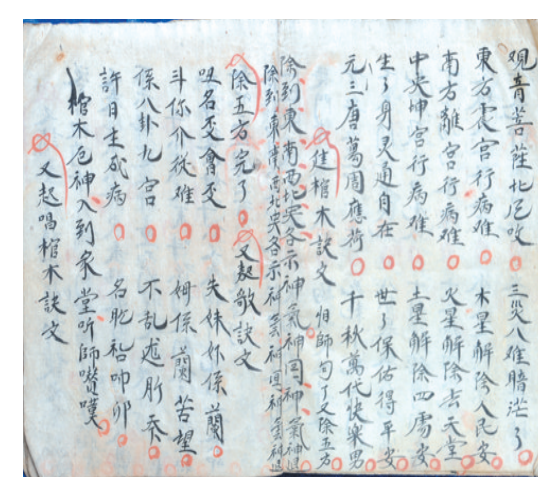 观音菩薩北巳收 三災八难暗茫了
東方震宫行病难 木星解除人民安
南方離宫行病难 火星解除去天堂
中央坤宫行病难 土星解除四處安
生了身灵通自在 世了保佑得平安
元三唐葛周應荷 千秋萬代快樂男
進棺木訣文 旧師句了又除五方
除到東南西北央各示神氣神囬神氣神退
除到東南西北央各示神氣神囬神氣神退
除五方完了 又起敬訣文
名 會 失妹 係蘭
斗你个 难 姆係蘭苦望
係八卦九宫 不乱 所
許日生成病 名 卯
棺木厄神入到衆堂听師嘆
又起唱棺木訣文